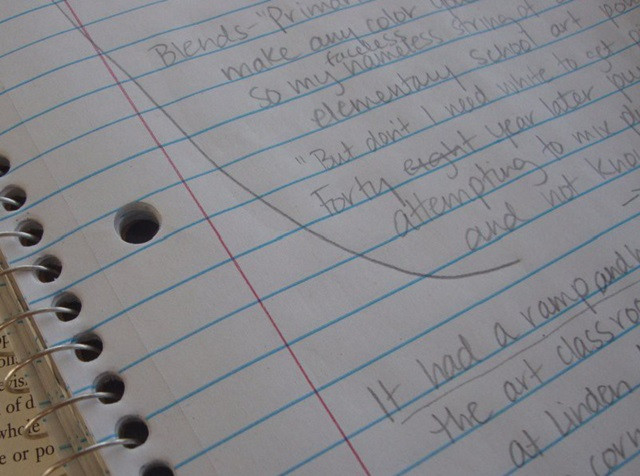 Blends- "Primar
make any color
faceless
so my nameless string of
elementary school art
"But don't I need white to get
Forty eight year later
attempting to mix
and not kno
It had a ramp and
the art classro
at Linden
corn
of d
whole
e or po